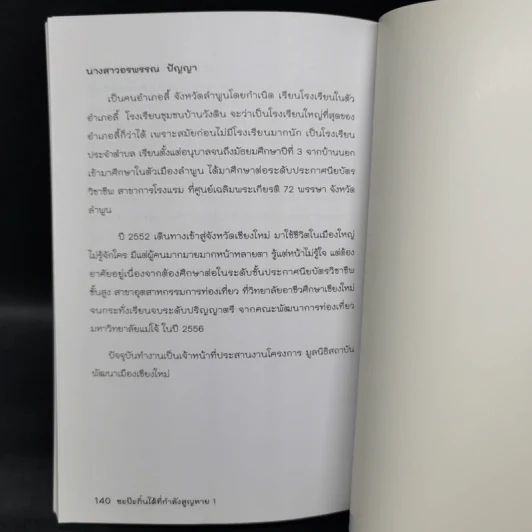 นางสาวอรพรรณ ปัญญา
เป็นคนอำเภอลี้ จังหวัดลำพูนโดยกำเนิด เรียนโรงเรียนในตัว
อำเภอลี้ โรงเรียนชุมชนบ้านวังดิน จะว่าเป็นโรงเรียนใหญ่ที่สุดของ
อำเภอลี้ก็ว่าได้ เพราะสมัยก่อนไม่มีโรงเรียนมากนัก เป็นโรงเรียน
ประจำตำบล เรียนตั้งแต่อนุบาลจนถึงมัธยมศึกษาปีที่ 3 จากบ้านนอก
เข้ามาศึกษาในตัวเมืองลำพูน ได้มาศึกษาต่อระดับประกาศนียบัตร
วิชาชีพ สาขาการโรงแรม ที่ศูนย์เฉลิมพระเกียรติ 72 พรรษา จังหวัด
ลำพูน
ปี 2552 เดินทางเข้าสู่จังหวัดเชียงใหม่ มาใช้ชีวิตในเมืองใหญ่
ไม่รู้จักใคร มีแต่ผู้คนมากมายมากหน้าหลายตา รู้แต่หน้าไม่รู้ใจ แต่ต้อง
อาศัยอยู่เนื่องจากต้องศึกษาต่อในระดับชั้นประกาศนียบัตรวิชาชีพ
ชั้นสูง สาขาอุตสาหกรรมการท่องเที่ยว ที่วิทยาลัยอาชีวศึกษาเชียงใหม่
จนกระทั่งเรียนจบระดับปริญญาตรี จากคณะพัฒนาการท่องเที่ยว
มหาวิทยาลัยแม่โจ้ ในปี 2556
ปัจจุบันทำงานเป็นเจ้าหน้าที่ประสานงานโครงการ มูลนิธิสถาบัน
พัฒนาเมืองเชียงใหม่
140 ชะป๊ะถิ่นใต้ที่กำลังสูญหาย 1